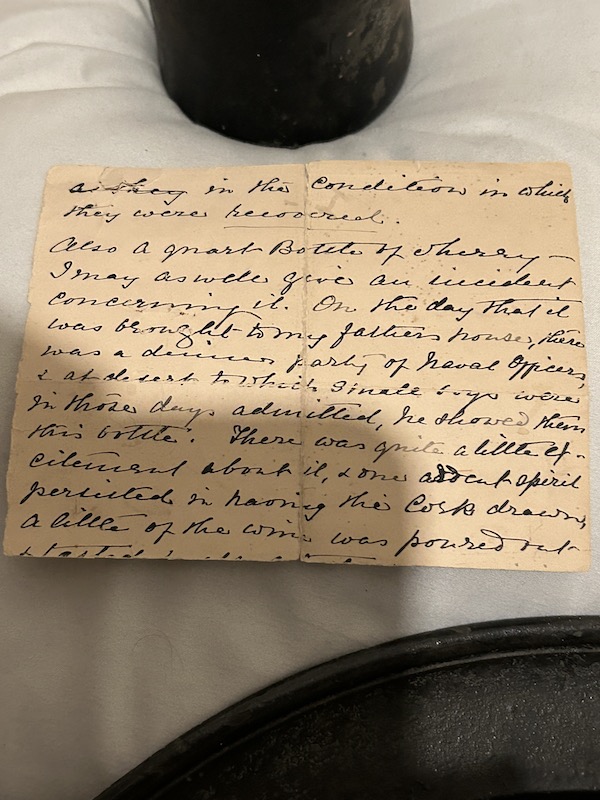 as they in the condition in which
they were recovered.
Also a quart Bottle of sherry —
I may as well give an incident
concerning it. On the day that it
was brought to my fathers house, there
was a dinner party of Naval Officers,
& at desert to which small boys were
in those days admitted, he showed them
this bottle. There was quite a little ex-
citement about it, & one ardent spirit
persisted in having the cork drawn,
a little of the wine was poured out
& tasted